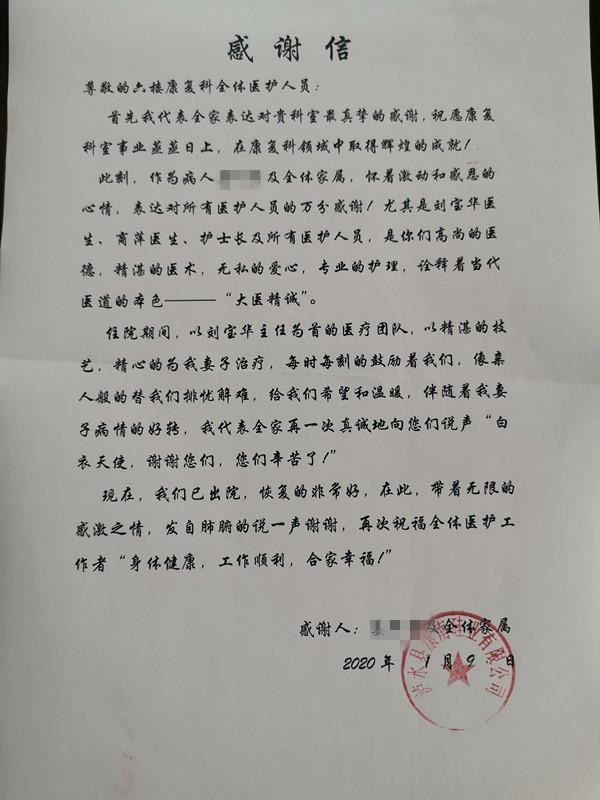 感谢信
尊敬的六楼康复科全体医护人员：
首先我代表全家表达对贵科室最真挚的感谢，祝愿康复
科室事业蒸蒸日上，在康复科领域中取得辉煌的成就！
此刻，作为病人及全体家属，怀着激动和感恩的
心情，表达对所有医护人员的万分感谢！尤其是刘宝华医
生、商萍医生、护士长及所有医护人员，是你们高尚的医
德，精湛的医术，无私的爱心，专业的护理，诠释着当代
医道的本色———“大医精诚”。
住院期间，以刘宝华主任为首的医疗团队，以精湛的技
艺，精心的为我妻子治疗，每时每刻的鼓励着我们，像亲
人般的替我们排忧解难，给我们希望和温暖，伴随着我妻
子病情的好转，我代表全家再一次真诚地向您们说声“白
衣天使，谢谢您们，您们辛苦了！”
现在，我们已出院，恢复的非常好，在此，带着无限的
感激之情，发自肺腑的说一声谢谢，再次祝福全体医护工
作者“身体健康，工作顺利，合家幸福！”
感谢人：及全体家属
2020年1月9日
水县业有限公司